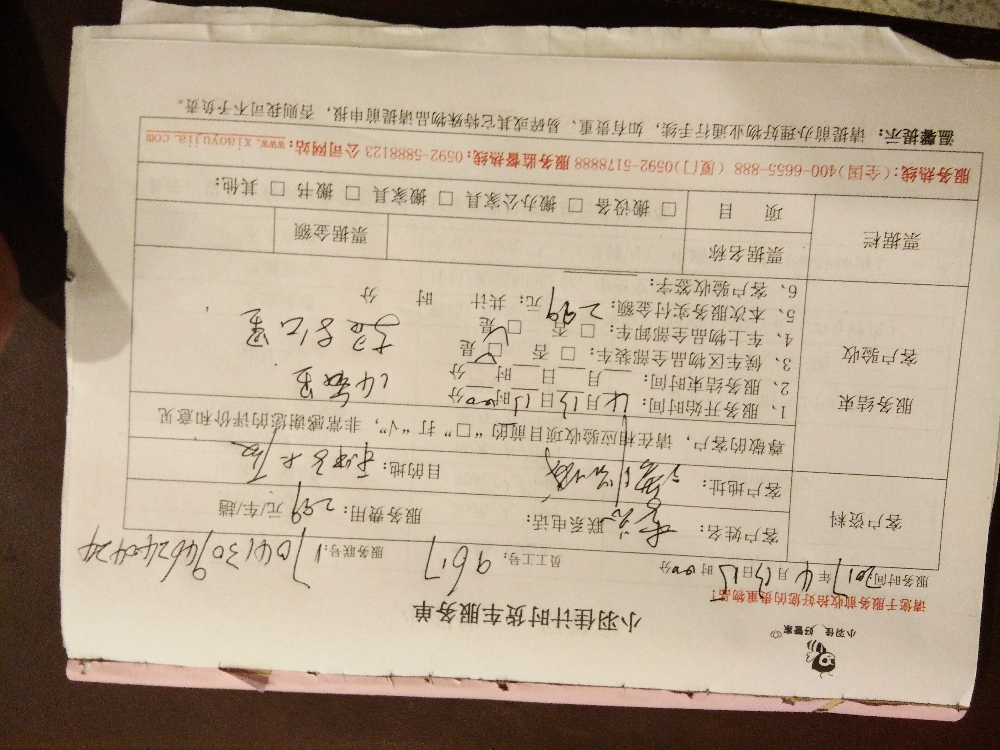 小羽佳 好管家
小羽佳计时货车服务单
请您于服务前收拾好您的贵重物品!
服务时间:2017年4月13日13时00分 员工工号:9617 服务联号:1704130946240424
客户资料
客户姓名: 联系电话: 服务费用:299元/车/趟
客户地址: 目的地:
服务结束 客户验收
尊敬的客户,请在相应验收项目前的“□”打“√”,非常感谢您的评价和意见
1、服务开始时间:4月13日13时00分
2、服务结束时间: 月 日 时 分
3、候车区物品全部装车:□ 否 □ 是
4、车上物品全部卸车:□ 否 □ 是
5、本次服务实付金额:299元; 共计 时 分
6、客户验收签字:
票据栏
票据名称 票据金额
项 目 □ 搬设备 □ 搬办公家具 □ 搬家具 □ 搬书 □ 其他:
服务热线:(全国)400-6655-888 (厦门)0592-5178888 服务监督热线:0592-5888123 公司网站:www.xiaoyujia.com
温馨提示:请提前办理好物业通行手续,如有贵重、易碎或其它特殊物品请提前申报,否则我司不予负责。